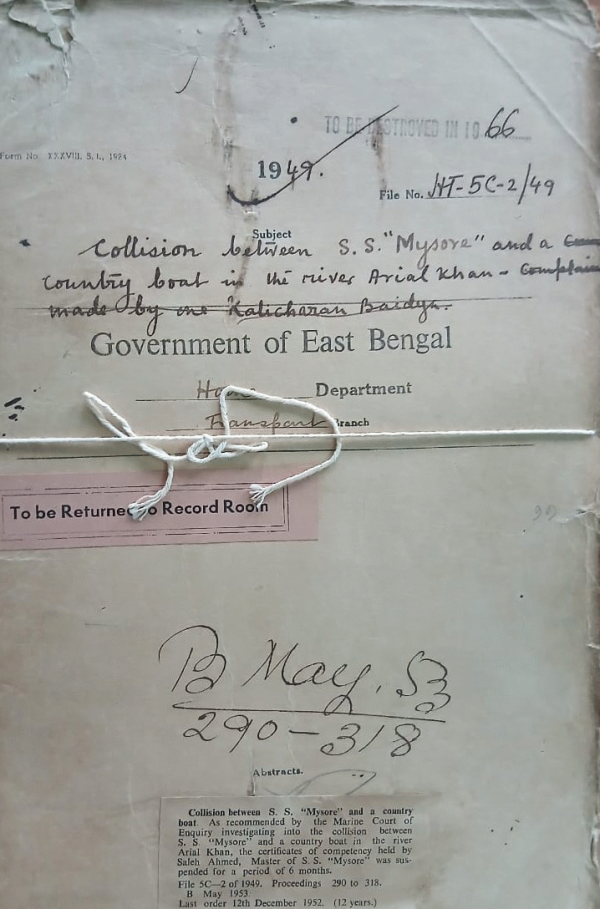 TO BE DESTROYED IN 1966
Form No. XXXVIII. S. I., 1924
1949.
File No. HT-5C-2/49
Subject
Collision between S.S. "Mysore" and a
country boat in the river Arial Khan - Complain
made by one Kalicharan Baidya.
Government of East Bengal
Home Department
Transport Branch
To be Returned to Record Room
B May. 53
290-318
Abstracts.
Collision between S. S. "Mysore" and a country
boat. As recommended by the Marine Court of
Enquiry investigating into the collision between
S. S. "Mysore" and a country boat in the river
Arial Khan, the certificates of competency held by
Saleh Ahmed, Master of S. S. "Mysore" was sus-
pended for a period of 6 months.
File 5C—2 of 1949. Proceedings 290 to 318.
B May 1953.
Last order 12th December 1952. (12 years.)